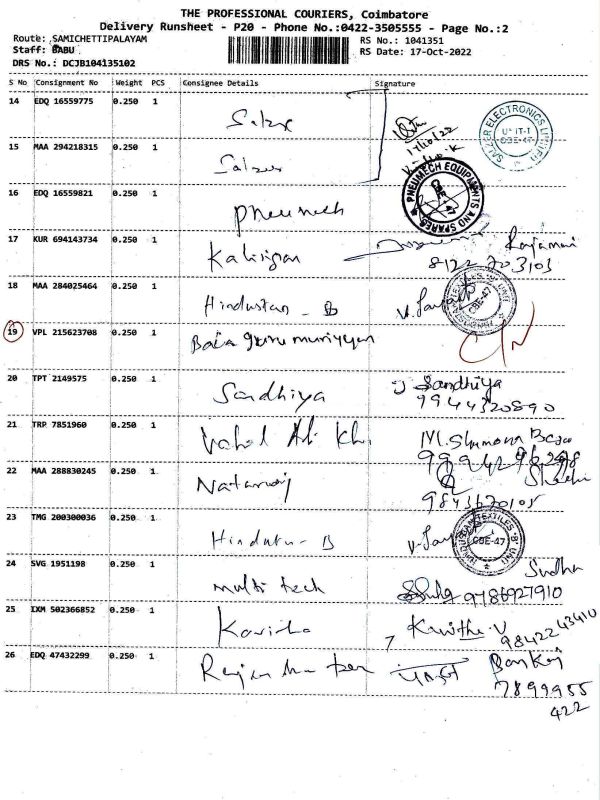 THE PROFESSIONAL COURIERS, Coimbatore
Delivery Runsheet - P20 - Phone No.:0422-3505555 - Page No.:2
Route: SAMICHETTIPALAYAM
RS No.: 1041351
Staff: BABU
RS Date: 17-Oct-2022
DRS No.: DCJB104135102
S No Consignment No Weight PCS Consignee Details Signature
14 EDQ 16559775 0.250 1 Salzer
17/10/22
SALZER ELECTRONICS LIMITED UNIT-I CBE-47
15 MAA 294218315 0.250 1 Salzer
16 EDQ 16559821 0.250 1 Pneumech
PNEUMECH EQUIPMENTS AND SPARES CBE-47
17 KUR 694143734 0.250 1 Rajamani
8122703103
18 MAA 284025464 0.250 1 Hindustan - B
HINDUSTAN TEXTILES 'B' UNIT CBE-47
19 VPL 215623708 0.250 1
20 TPT 2149575 0.250 1 Sandhiya Sandhiya
9944320890
21 TRP 7851960 0.250 1 Vahab Ali Khan
22 MAA 288830245 0.250 1 Nataraj
9843670105
23 TMG 200300036 0.250 1 Hindustan - B
HINDUSTAN TEXTILES 'B' UNIT CBE-47
24 SVG 1951198 0.250 1 Multi tech Sudha
9786927910
25 IXM 502366852 0.250 1 Kavitha Kavitha.V
9842243410
26 EDQ 47432299 0.250 1
7899955
422